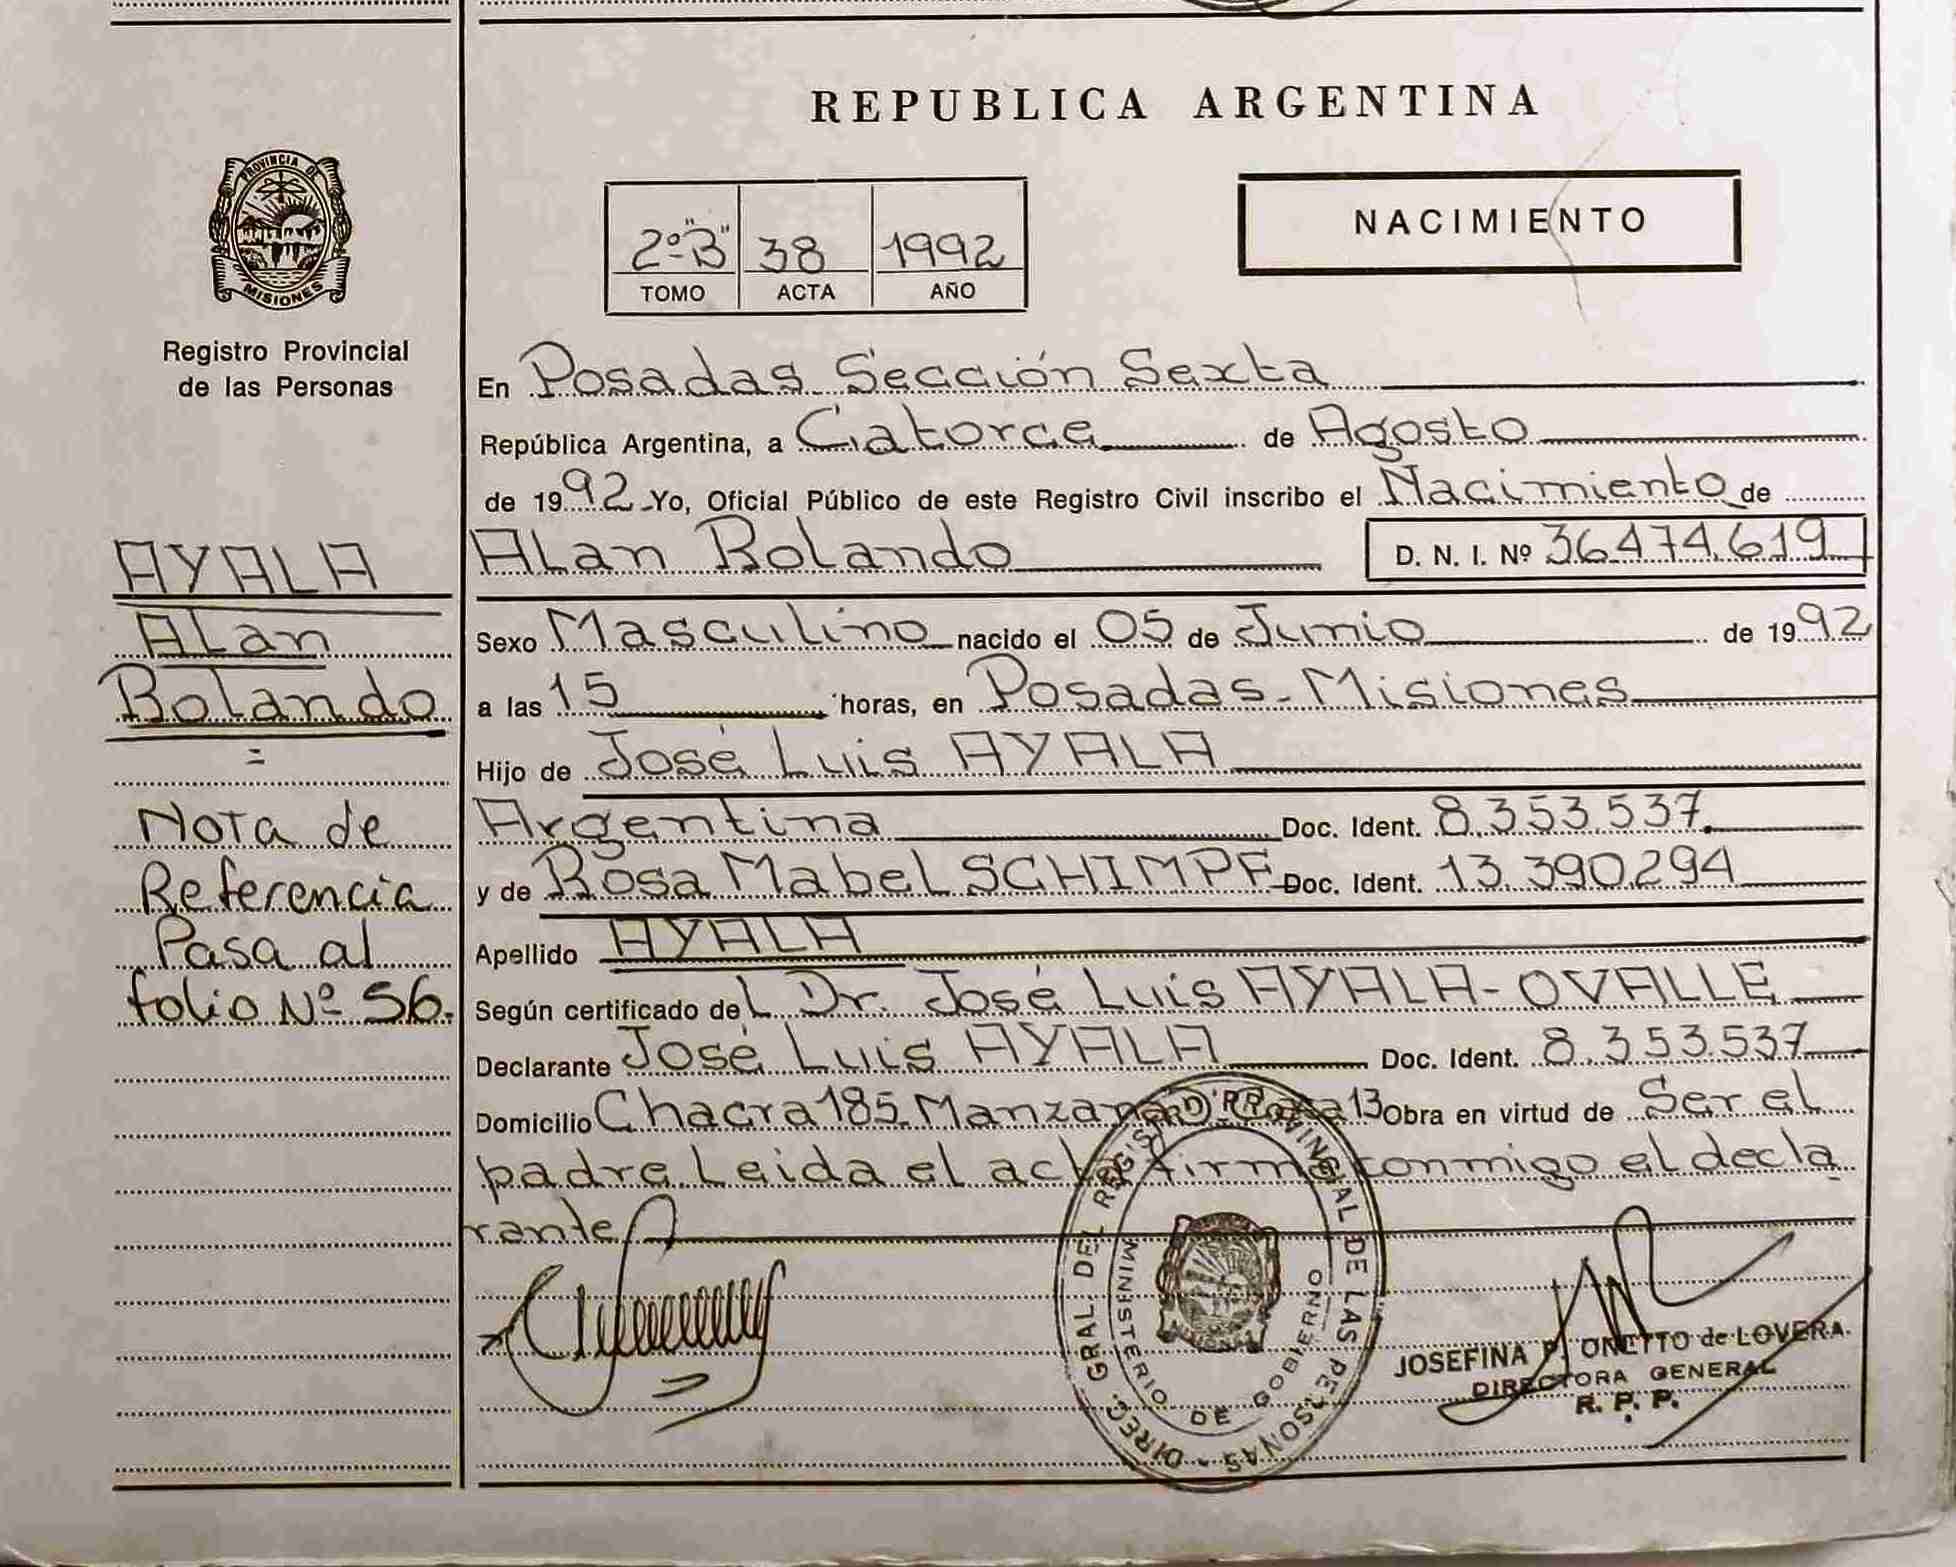 REPUBLICA ARGENTINA
PROVINCIA DE
MISIONES
Registro Provincial
de las Personas
2º "B" 38 1992
TOMO ACTA AÑO
NACIMIENTO
En Posadas Sección Sexta
República Argentina, a Catorce de Agosto
de 1992 Yo, Oficial Público de este Registro Civil inscribo el Nacimiento de
Alan Rolando D. N. I. Nº 36.474.619
Sexo Masculino nacido el 05 de Junio de 1992
a las 15 horas, en Posadas-Misiones
Hijo de José Luis AYALA
Argentina Doc. Ident. 8.353.537
y de Rosa Mabel SCHIMPF Doc. Ident. 13.390.294
Apellido AYALA
Según certificado del Dr. José Luis AYALA-OVALLE
Declarante José Luis AYALA Doc. Ident. 8.353.537
Domicilio Chacra 185 Manzana 13 Obra en virtud de Ser el
padre. Leida el acta firma conmigo el decla
rante
AYALA
Alan
Rolando
=
Nota de
Referencia
Pasa al
folio Nº 56.
DIREC. GRAL. DEL REGIST. PROVINCIAL DE LAS PERSONAS -
MINISTERIO DE GOBIERNO
JOSEFINA P. ONETTO de LOVERA
DIRECTORA GENERAL
R. P. P.